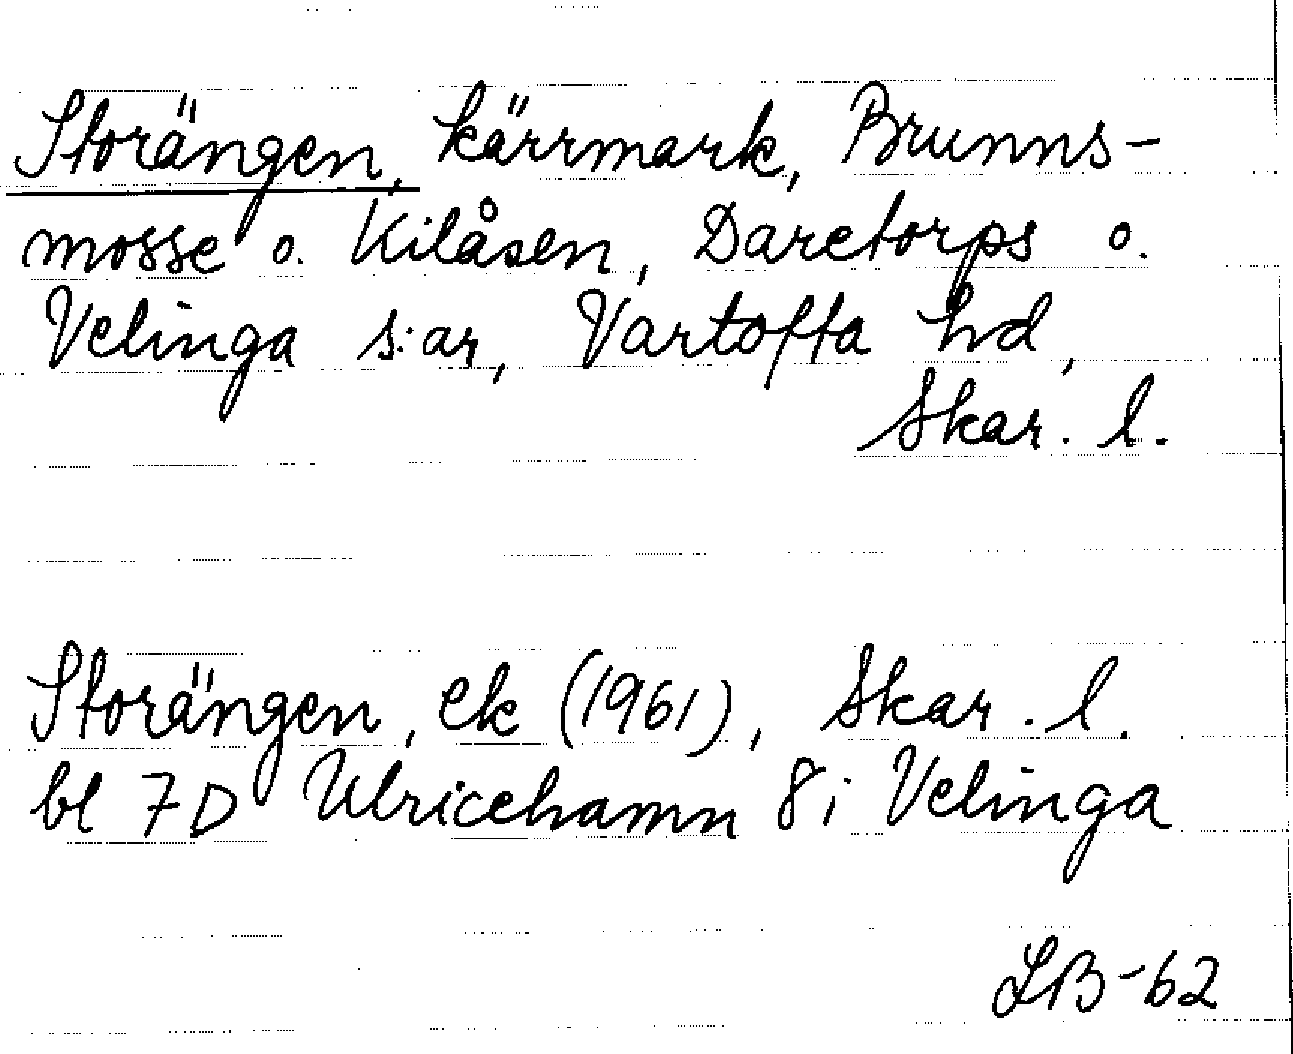 Storängen, kärrmark, Brunns-
mosse o. Kilåsen, Daretorps o.
Velinga s:ar, Vartofta hd,
Skar. l.
Storängen, ek (1961), Skar. l.
bl 7D Ulricehamn 8i Velinga
LB-62